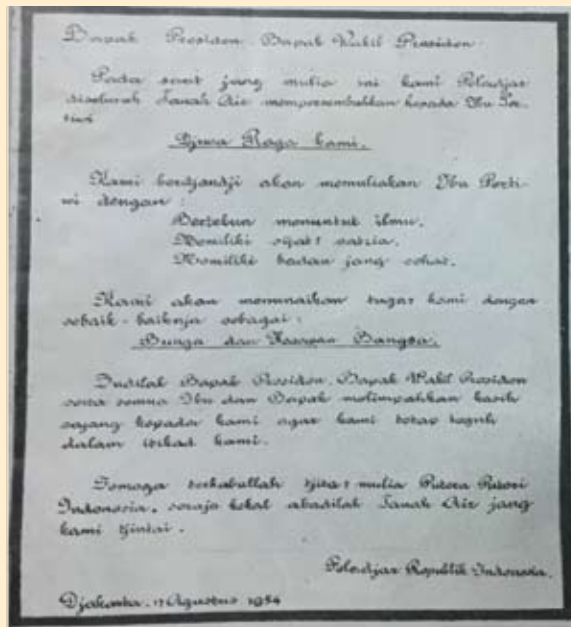 Bapak Presiden. Bapak Wakil Presiden
Pada saat jang mulia ini kami Peladjar
diseluruh Tanah Air mempersembahkan kepada Ibu Per-
tiwi
Djiwa Raga kami.
Kami berdjandji akan memuliakan Ibu Perti-
wi dengan :
Bertekun menuntut ilmu.
Memiliki sifat2 satria.
Memiliki badan jang sehat.
Kami akan menunaikan tugas kami dengan
sebaik-baiknja sebagai :
Bunga dan Harapan Bangsa.
Bapak Presiden. Bapak Wakil Presiden
serta semua Ibu dan Bapak melimpahkan kasih
sajang kepada kami agar kami tetap teguh
dalam itikad kami.
Semoga terkabullah tjita2 mulia Putera Puteri
Indonesia. kekal abadilah Tanah Air jang
kami tjintai.
Peladjar Republik Indonesia.
Djakarta. 17 Agustus 1954